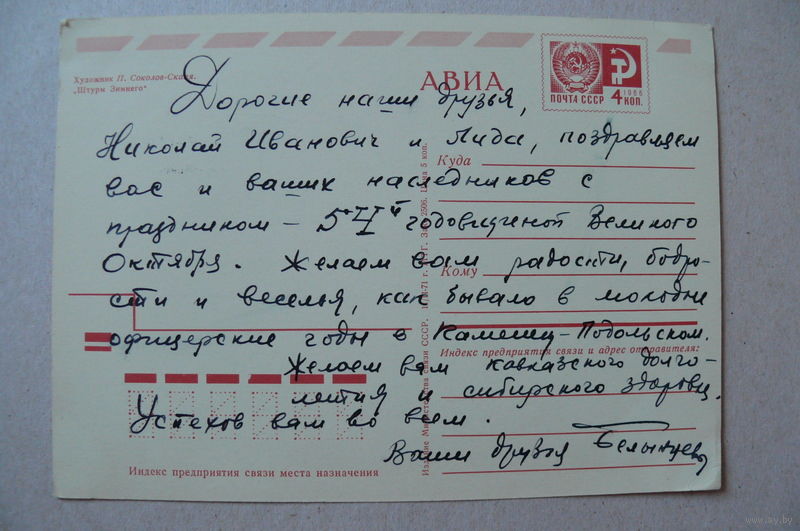 Художник П. Соколов-Скаля.
„Штурм Зимнего“
АВИА
ПОЧТА СССР
1966
4 КОП.
Дорогие наши друзья,
Николай Иванович и Лида, поздравляем
Куда
вас и ваших наследников с
праздником – 54й годовщиной Великого
Октября. Желаем вам радости, бодро-
Кому
сти и веселья, как бывало в молодые
офицерские годы в Каменец-Подольском.
Индекс предприятия связи и адрес отправителя:
Желаем вам кавказского долго-
летия и сибирского здоровья.
Успехов вам во всем.
Ваши друзья
Индекс предприятия связи места назначения
Издание Министерства связи СССР.
2506. Цена 5 коп.
www.ay.by